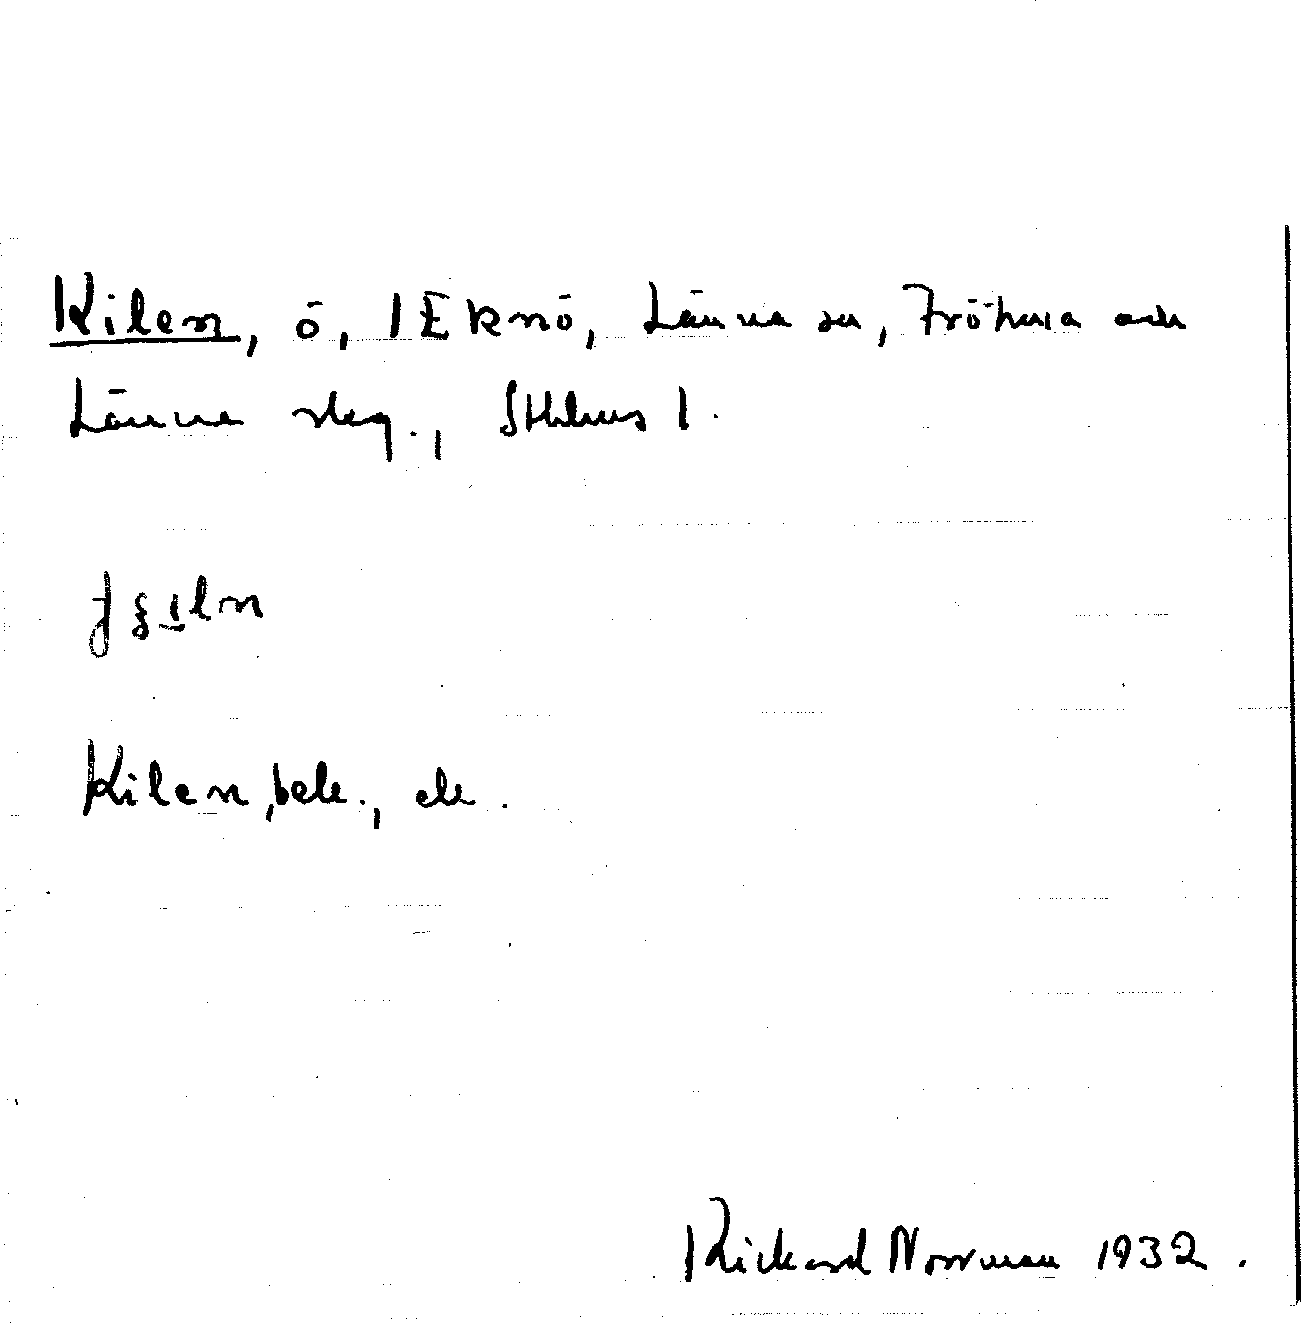 Kilen, ö, 1 Eknö, Länna sn, Fröhuna och
Länna skg., Sthlms l.
Kilen, bek., ek.
Rickard Norrman 1932.